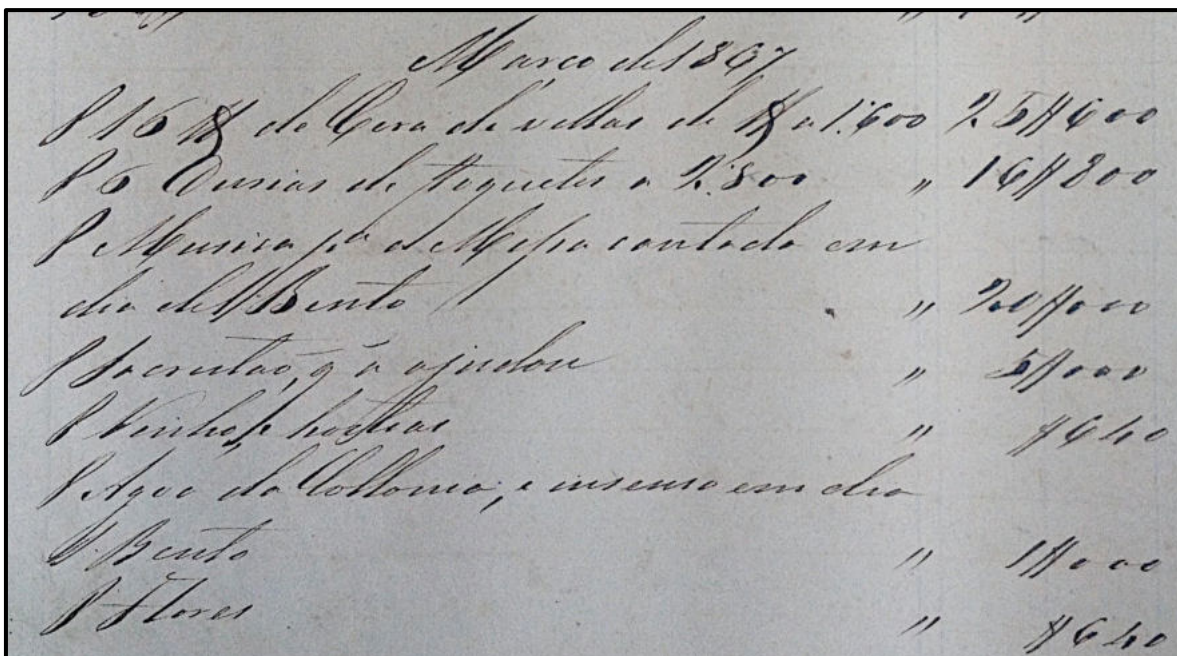 Março de 1867
P 16 ℔ de Cera de vellas de ℔ a 1:600 25$600
P 6 Dusias de foguetes a 2:800 " 16$800
P Musica pª a Missa cantada em
dia de S Bento " 20$000
P Sacristão, q̃ a ajudou " 5$000
P Vinho, e hostias " $640
P Agoa da Collonia, e insenso em dia
S. Bento " 1$000
P Flores " $640